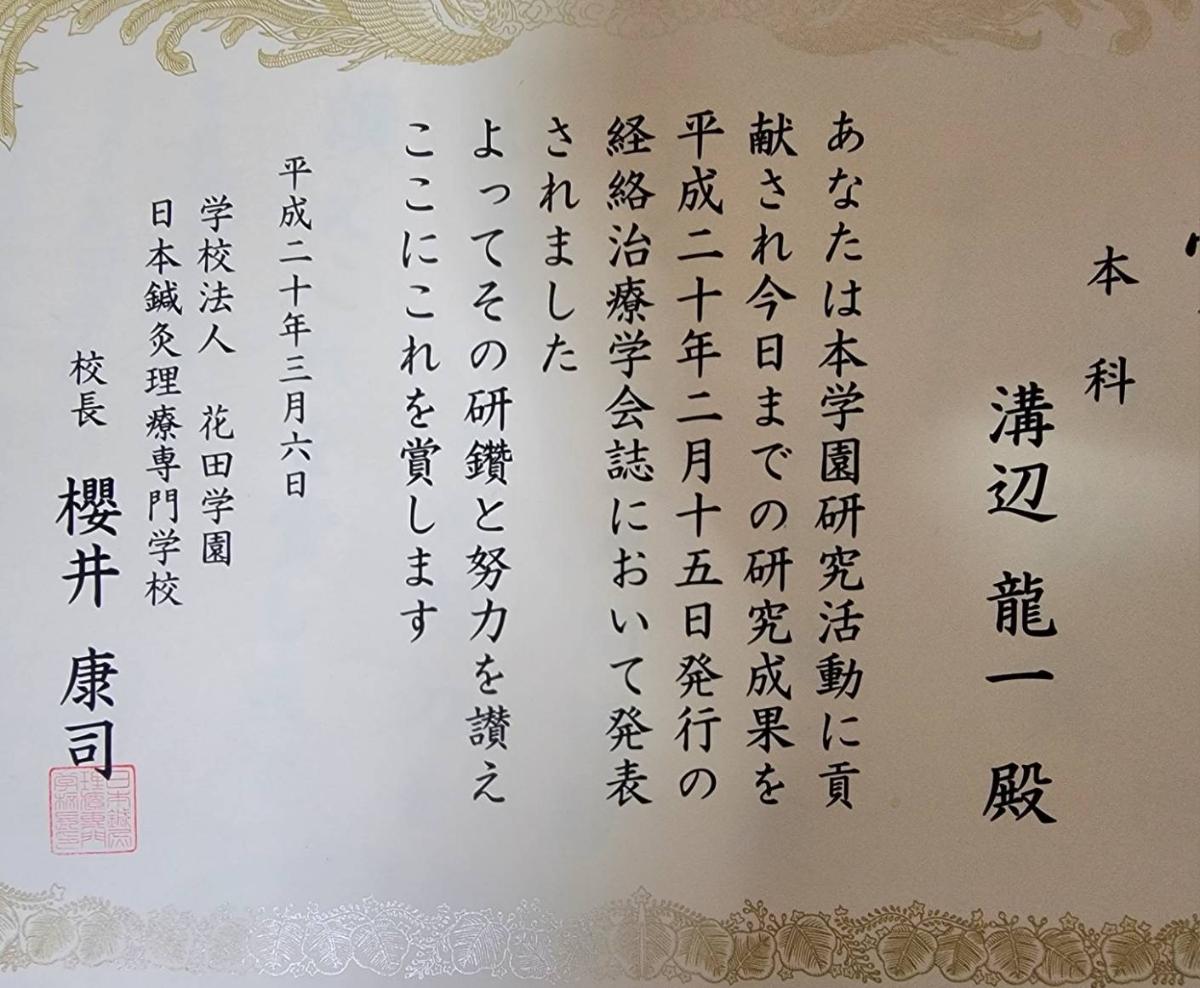 本科
溝辺 龍一 殿
あなたは本学園研究活動に貢
献され今日までの研究成果を
平成二十年二月十五日発行の
経絡治療学会誌において発表
されました
よってその研鑽と努力を讃え
ここにこれを賞します
平成二十年三月六日
学校法人 花田学園
日本鍼灸理療専門学校
校長 櫻井 康司